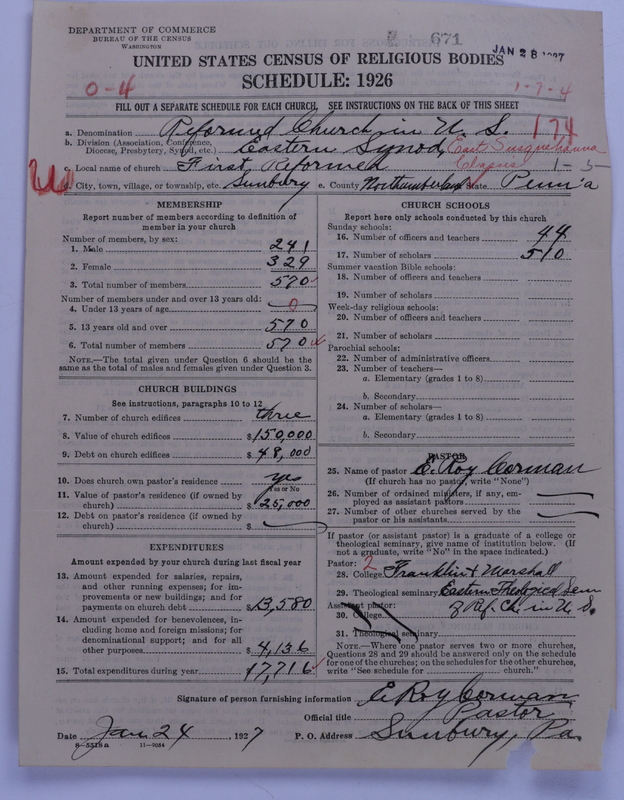 DEPARTMENT OF COMMERCE
BUREAU OF THE CENSUS
WASHINGTON
671
JAN 28 1927
UNITED STATES CENSUS OF RELIGIOUS BODIES
SCHEDULE: 1926
0-4
1-7-4
FILL OUT A SEPARATE SCHEDULE FOR EACH CHURCH, SEE INSTRUCTIONS ON THE BACK OF THIS SHEET
a. Denomination Reformed Church in U. S. 174
b. Division (Association, Conference, Diocese, Presbytery, Synod, etc.) Eastern Synod, East Susquehanna Classis
c. Local name of church First Reformed
d. City, town, village, or township, etc. Sunbury e. County Northumberland State Penn'a
MEMBERSHIP
Report number of members according to definition of
member in your church
Number of members, by sex:
1. Male 241
2. Female 329
3. Total number of members 570
Number of members under and over 13 years old:
4. Under 13 years of age 0
5. 13 years old and over 570
6. Total number of members 570
NOTE.—The total given under Question 6 should be
same as the total of males and females given under Question 3.
CHURCH BUILDINGS
See instructions, paragraphs 10 to 12
7. Number of church edifices three
8. Value of church edifices $150,000
9. Debt on church edifices $48,000
10. Does church own pastor's residence yes
Yes or No
11. Value of pastor's residence (if owned by
church) $25,000
12. Debt on pastor's residence (if owned by
church) $
EXPENDITURES
Amount expended by your church during last fiscal year
13. Amount expended for salaries, repairs,
and other running expenses; for im-
provements or new buildings; and for
payments on church debt $13,580
14. Amount expended for benevolences, in-
cluding home and foreign missions; for
denominational support; and for all
other purposes $4,136
15. Total expenditures during year 17,716
CHURCH SCHOOLS
Report here only schools conducted by this church
Sunday schools:
16. Number of officers and teachers 44
17. Number of scholars 510
Summer vacation Bible schools:
18. Number of officers and teachers
19. Number of scholars
Week-day religious schools:
20. Number of officers and teachers
21. Number of scholars
Parochial schools:
22. Number of administrative officers
23. Number of teachers—
a. Elementary (grades 1 to 8)
b. Secondary
24. Number of scholars—
a. Elementary (grades 1 to 8)
b. Secondary
PASTOR
25. Name of pastor C. Roy Corman
(If church has no pastor, write "None")
26. Number of ordained ministers, if any, em-
ployed as assistant pastors
27. Number of other churches served by the
pastor or his assistants
If pastor (or assistant pastor) is a graduate of a college or
theological seminary, give name of institution below. (If
not a graduate, write "No" in the space indicated.)
Pastor: 2
28. College Franklin & Marshall
29. Theological seminary Eastern Theological Sem
Assistant pastor: of Ref. Ch. in U. S.
30. College
31. Theological seminary
NOTE.—Where one pastor serves two or more churches,
Questions 28 and 29 should be answered only on the schedule
for one of the churches; on the schedules for the other churches,
write "See schedule for church."
Signature of person furnishing information C. Roy Corman
Official title Pastor
Date Jan 24, 1927 P. O. Address Sunbury, Pa.
8-5518a 11-9054